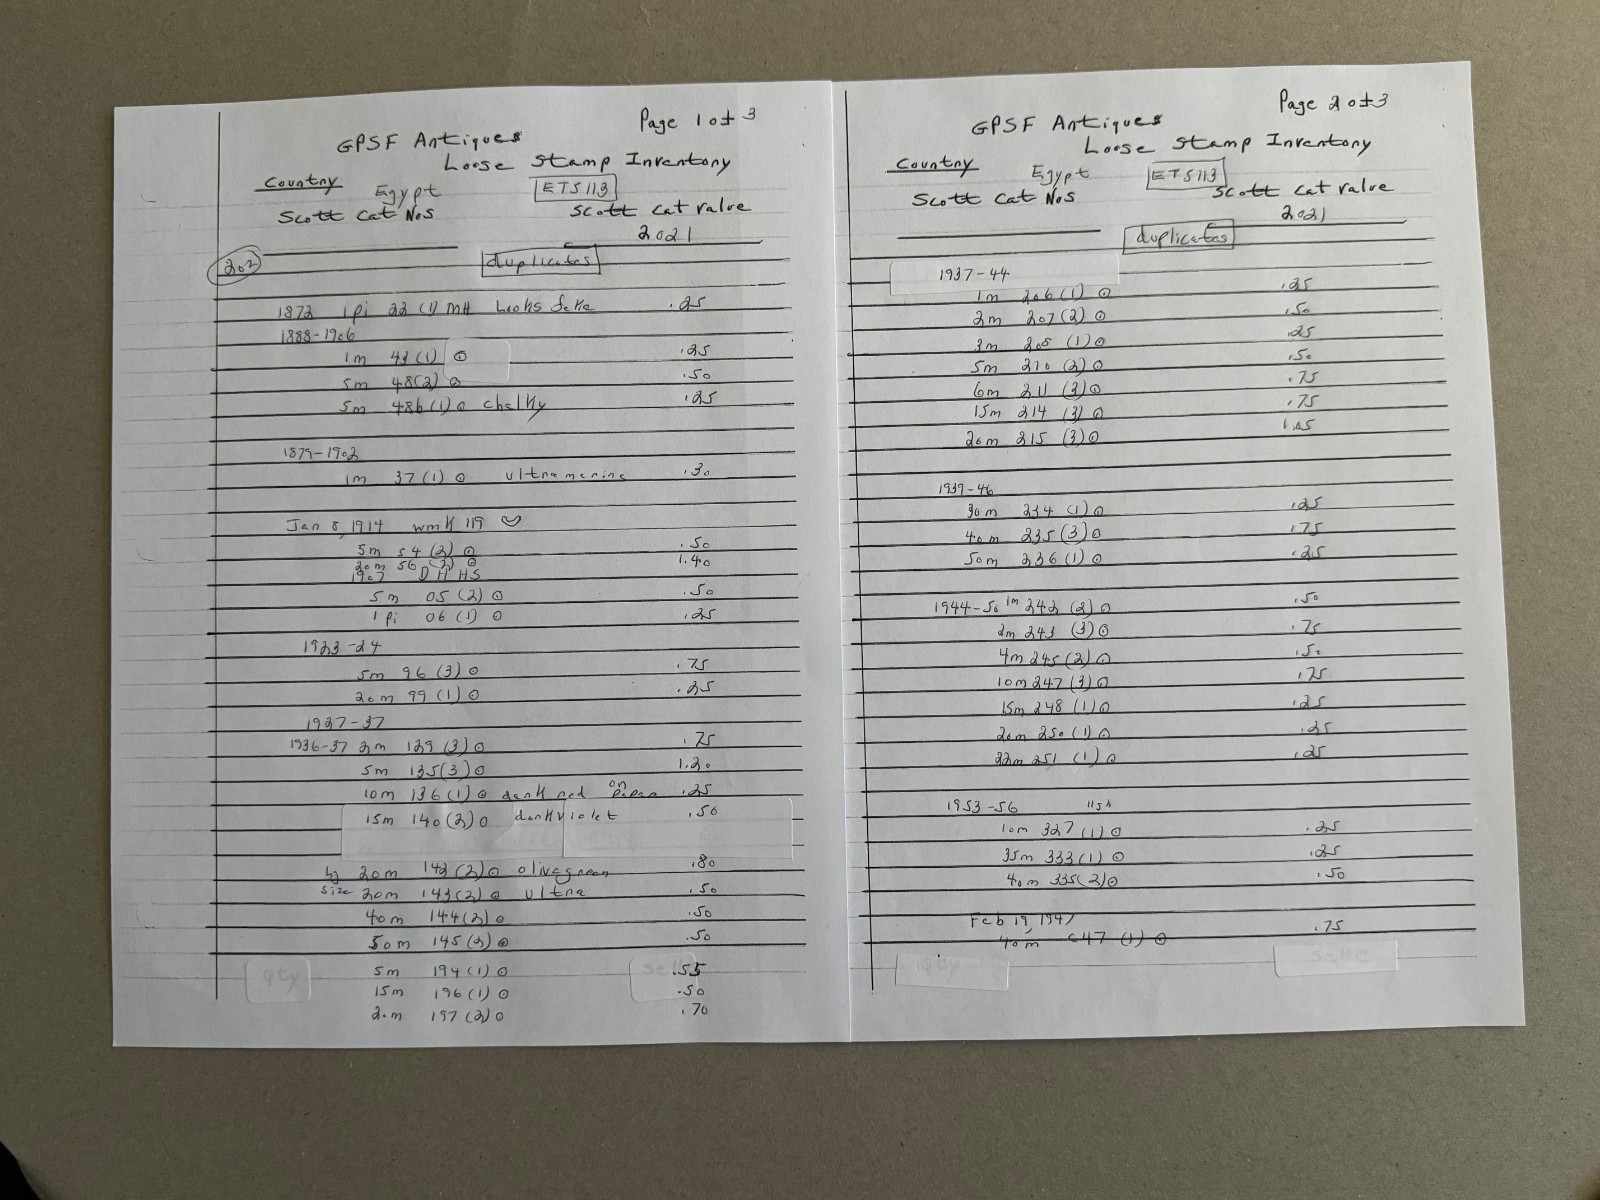 Page 1 of 3
GPSF Antiques
Loose Stamp Inventory
Country Egypt ETS113
Scott Cat Nos Scott Cat value
2021
202 duplicates
1872 1pi 22 (1) MH Looks fake .25
1888-1906
1m 43 (1) ⊙ .25
5m 48(2) ⊙ .50
5m 48b (1) ⊙ chalky .25
1879-1902
1m 37 (1) ⊙ ultramarine .30
Jan 8, 1914 wmk 119
5m 54 (2) ⊙ .50
20m 56 (2) ⊙ 1.40
1907 O H HS
5m 05 (2) ⊙ .50
1 pi 06 (1) ⊙ .25
1923-24
5m 96 (3) ⊙ .75
20m 99 (1) ⊙ .25
1927-37
1936-37 2m 129 (3) ⊙ .75
5m 135(3) ⊙ 1.20
10m 136 (1) ⊙ dark red on paper .25
15m 140 (2) ⊙ dark violet .50
lg 20m 142 (2) ⊙ olive green .80
size 20m 143(2) ⊙ ultra .50
40m 144(2) ⊙ .50
50m 145 (2) ⊙ .50
5m 194 (1) ⊙ .55
15m 196 (1) ⊙ .50
20m 197 (2) ⊙ .70
qty
Page 2 of 3
GPSF Antiques
Loose Stamp Inventory
Country Egypt ETS113
Scott Cat Nos Scott Cat value
2021
duplicates
1937-44
1m 206 (1) ⊙ .25
2m 207 (2) ⊙ .50
3m 208 (1) ⊙ .25
5m 210 (2) ⊙ .50
6m 211 (3) ⊙ .75
15m 214 (3) ⊙ .75
20m 215 (3) ⊙ 1.05
1939-46
30m 234 (1) ⊙ .25
40m 235 (3) ⊙ .75
50m 236 (1) ⊙ .25
1944-50 1m 242 (2) ⊙ .50
2m 243 (3) ⊙ .75
4m 245 (2) ⊙ .50
10m 247 (3) ⊙ .75
15m 248 (1) ⊙ .25
20m 250 (1) ⊙ .25
22m 251 (1) ⊙ .25
1953-56
10m 327 (1) ⊙ .25
35m 333 (1) ⊙ .25
40m 335(2) ⊙ .50
Feb 19, 1947
40m C47 (1) ⊙ .75
qty